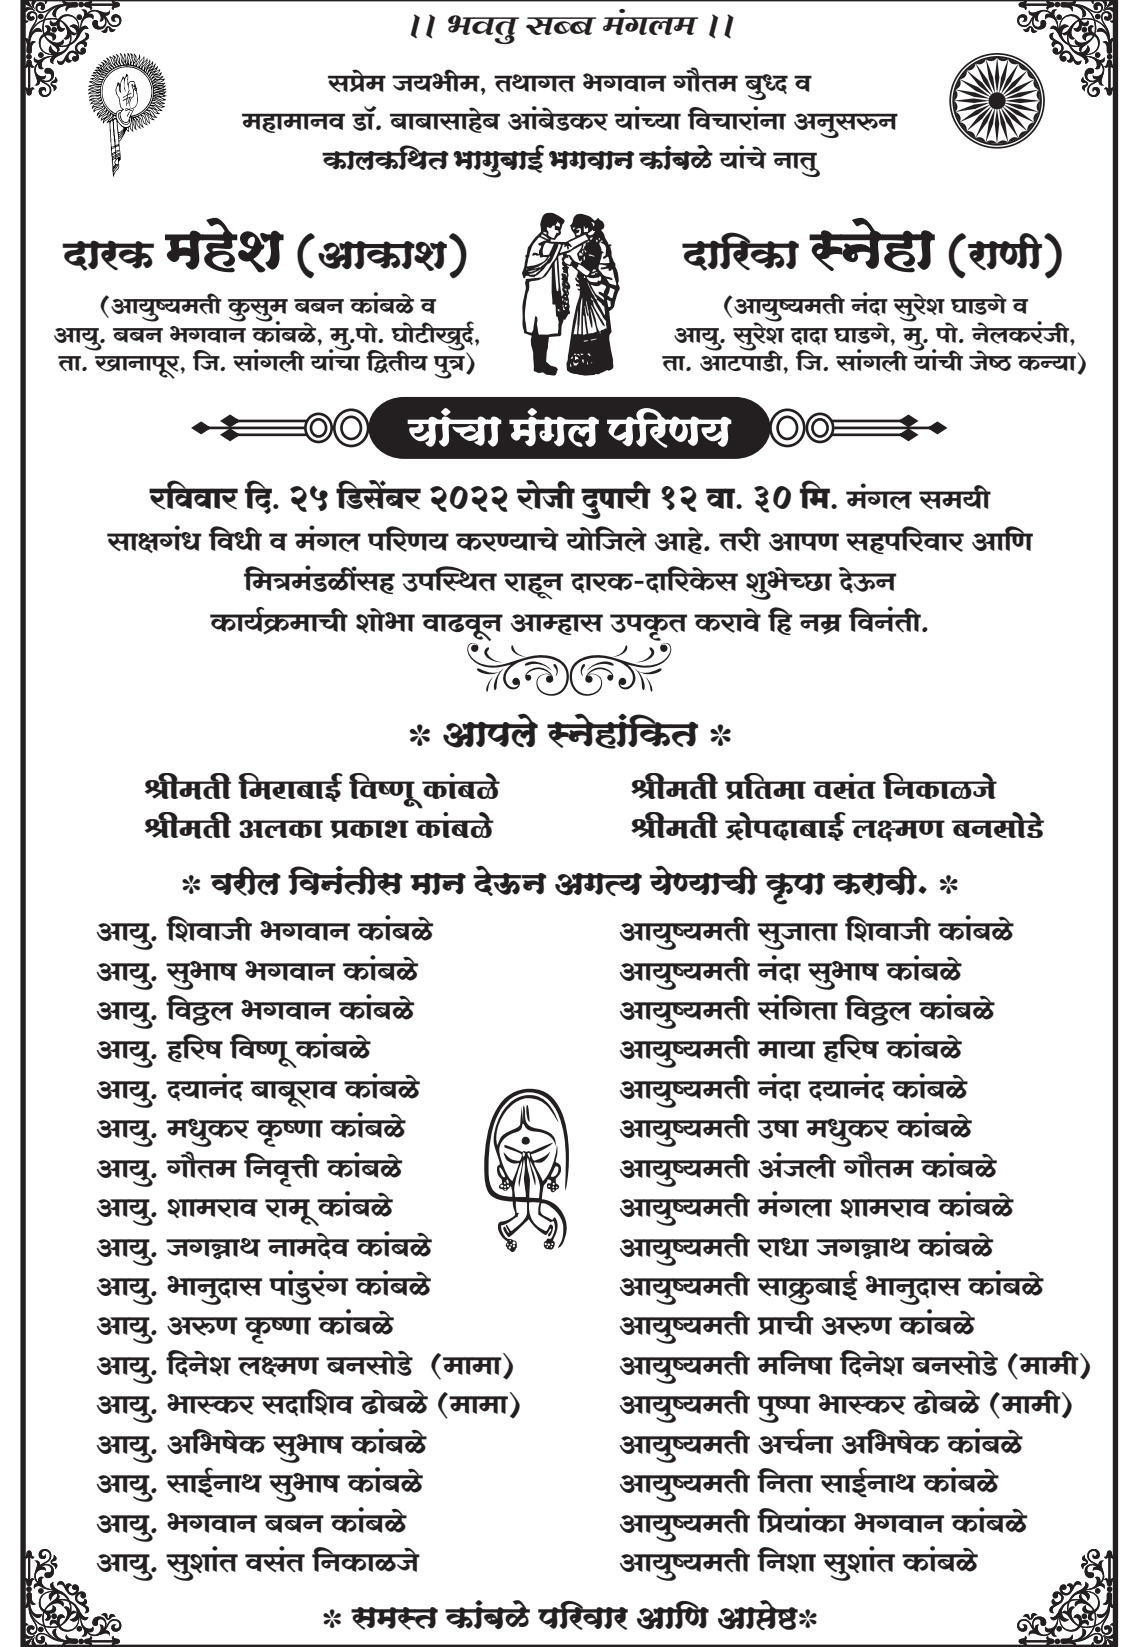 ।। भवतु सब्ब मंगलम ।।
सप्रेम जयभीम, तथागत भगवान गौतम बुध्द व
महामानव डॉ. बाबासाहेब आंबेडकर यांच्या विचारांना अनुसरून
कालकथित भागुबाई भगवान कांबळे यांचे नातु
दारक महेश (आकाश)
(आयुष्यमती कुसुम बबन कांबळे व
आयु. बबन भगवान कांबळे, मु.पो. घोटीखुर्द,
ता. खानापूर, जि. सांगली यांचा द्वितीय पुत्र)
दारिका स्नेहा (राणी)
(आयुष्यमती नंदा सुरेश घाडगे व
आयु. सुरेश दादा घाडगे, मु. पो. नेलकरंजी,
ता. आटपाडी, जि. सांगली यांची जेष्ठ कन्या)
यांचा मंगल परिणय
रविवार दि. २५ डिसेंबर २०२२ रोजी दुपारी १२ वा. ३० मि. मंगल समयी
साक्षगंध विधी व मंगल परिणय करण्याचे योजिले आहे. तरी आपण सहपरिवार आणि
मित्रमंडळींसह उपस्थित राहून दारक-दारिकेस शुभेच्छा देऊन
कार्यक्रमाची शोभा वाढवून आम्हास उपकृत करावे हि नम्र विनंती.
* आपले स्नेहांकित *
श्रीमती मिराबाई विष्णू कांबळे
श्रीमती अलका प्रकाश कांबळे
श्रीमती प्रतिमा वसंत निकाळजे
श्रीमती द्रोपदाबाई लक्ष्मण बनसोडे
* वरील विनंतीस मान देऊन अगत्य येण्याची कृपा करावी. *
आयु. शिवाजी भगवान कांबळे
आयु. सुभाष भगवान कांबळे
आयु. विठ्ठल भगवान कांबळे
आयु. हरिष विष्णू कांबळे
आयु. दयानंद बाबूराव कांबळे
आयु. मधुकर कृष्णा कांबळे
आयु. गौतम निवृत्ती कांबळे
आयु. शामराव रामू कांबळे
आयु. जगन्नाथ नामदेव कांबळे
आयु. भानुदास पांडुरंग कांबळे
आयु. अरूण कृष्णा कांबळे
आयु. दिनेश लक्ष्मण बनसोडे (मामा)
आयु. भास्कर सदाशिव ढोबळे (मामा)
आयु. अभिषेक सुभाष कांबळे
आयु. साईनाथ सुभाष कांबळे
आयु. भगवान बबन कांबळे
आयु. सुशांत वसंत निकाळजे
आयुष्यमती सुजाता शिवाजी कांबळे
आयुष्यमती नंदा सुभाष कांबळे
आयुष्यमती संगिता विठ्ठल कांबळे
आयुष्यमती माया हरिष कांबळे
आयुष्यमती नंदा दयानंद कांबळे
आयुष्यमती उषा मधुकर कांबळे
आयुष्यमती अंजली गौतम कांबळे
आयुष्यमती मंगला शामराव कांबळे
आयुष्यमती राधा जगन्नाथ कांबळे
आयुष्यमती साक्रुबाई भानुदास कांबळे
आयुष्यमती प्राची अरूण कांबळे
आयुष्यमती मनिषा दिनेश बनसोडे (मामी)
आयुष्यमती पुष्पा भास्कर ढोबळे (मामी)
आयुष्यमती अर्चना अभिषेक कांबळे
आयुष्यमती निता साईनाथ कांबळे
आयुष्यमती प्रियांका भगवान कांबळे
आयुष्यमती निशा सुशांत कांबळे
* समस्त कांबळे परिवार आणि आप्तेष्ठ*